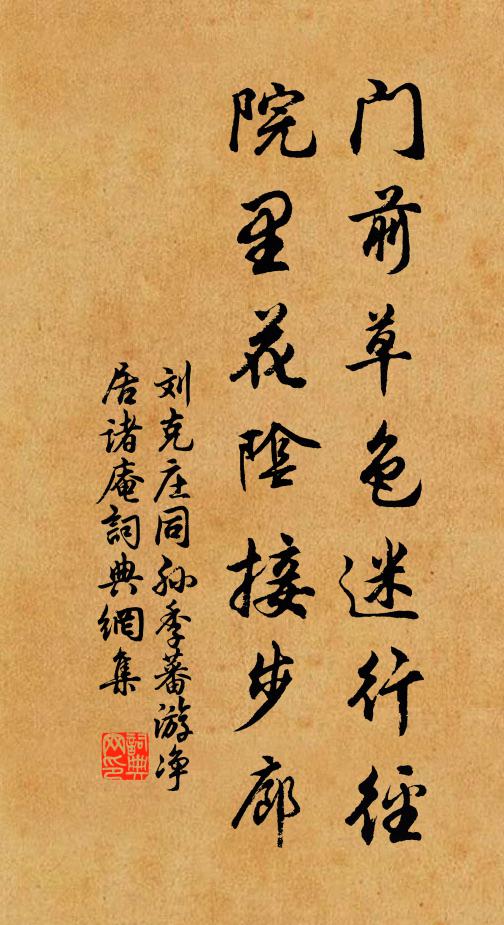 门前草色迷行径
院里花陰接步廊
刘克庄同孙季蕃游净
居诸庵詞典網集
詞典
网印